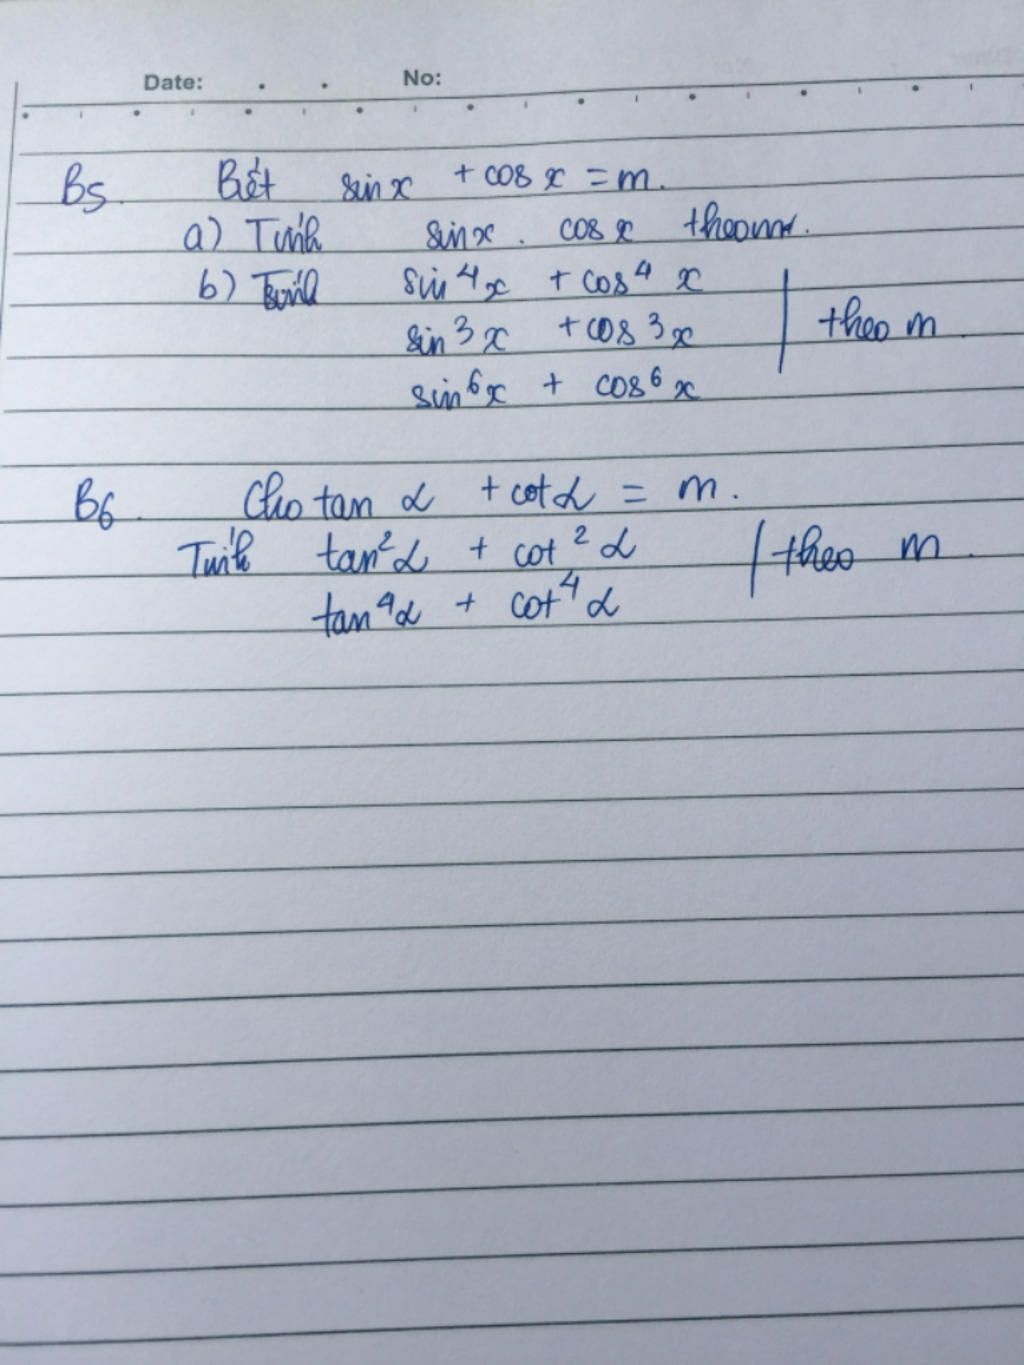 Date: . . No:
B5. Biết sin x + cos x = m.
a) Tính sin x . cos x theo m.
b) Tính sin⁴x + cos⁴ x
sin³x + cos³x | theo m
sin⁶x + cos⁶x
B6. Cho tan α + cot α = m.
Tính tan²α + cot²α | theo m.
tan⁴α + cot⁴α